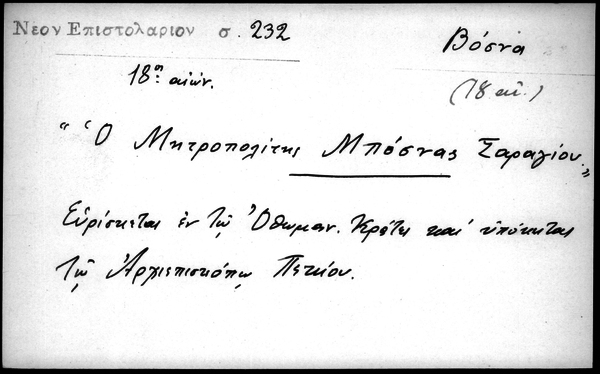 Νεον Επιστολαριον σ. 232
Βόσνα
18ος αἰών.
(18 αἰ.)
"Ὁ Μητροπολίτης Μπόσνας Σαραγίου."
Εὑρίσκεται ἐν τῷ Ὀθωμαν. Κράτει καὶ ὑπόκειται
τῷ Ἀρχιεπισκόπῳ Πεκίου.